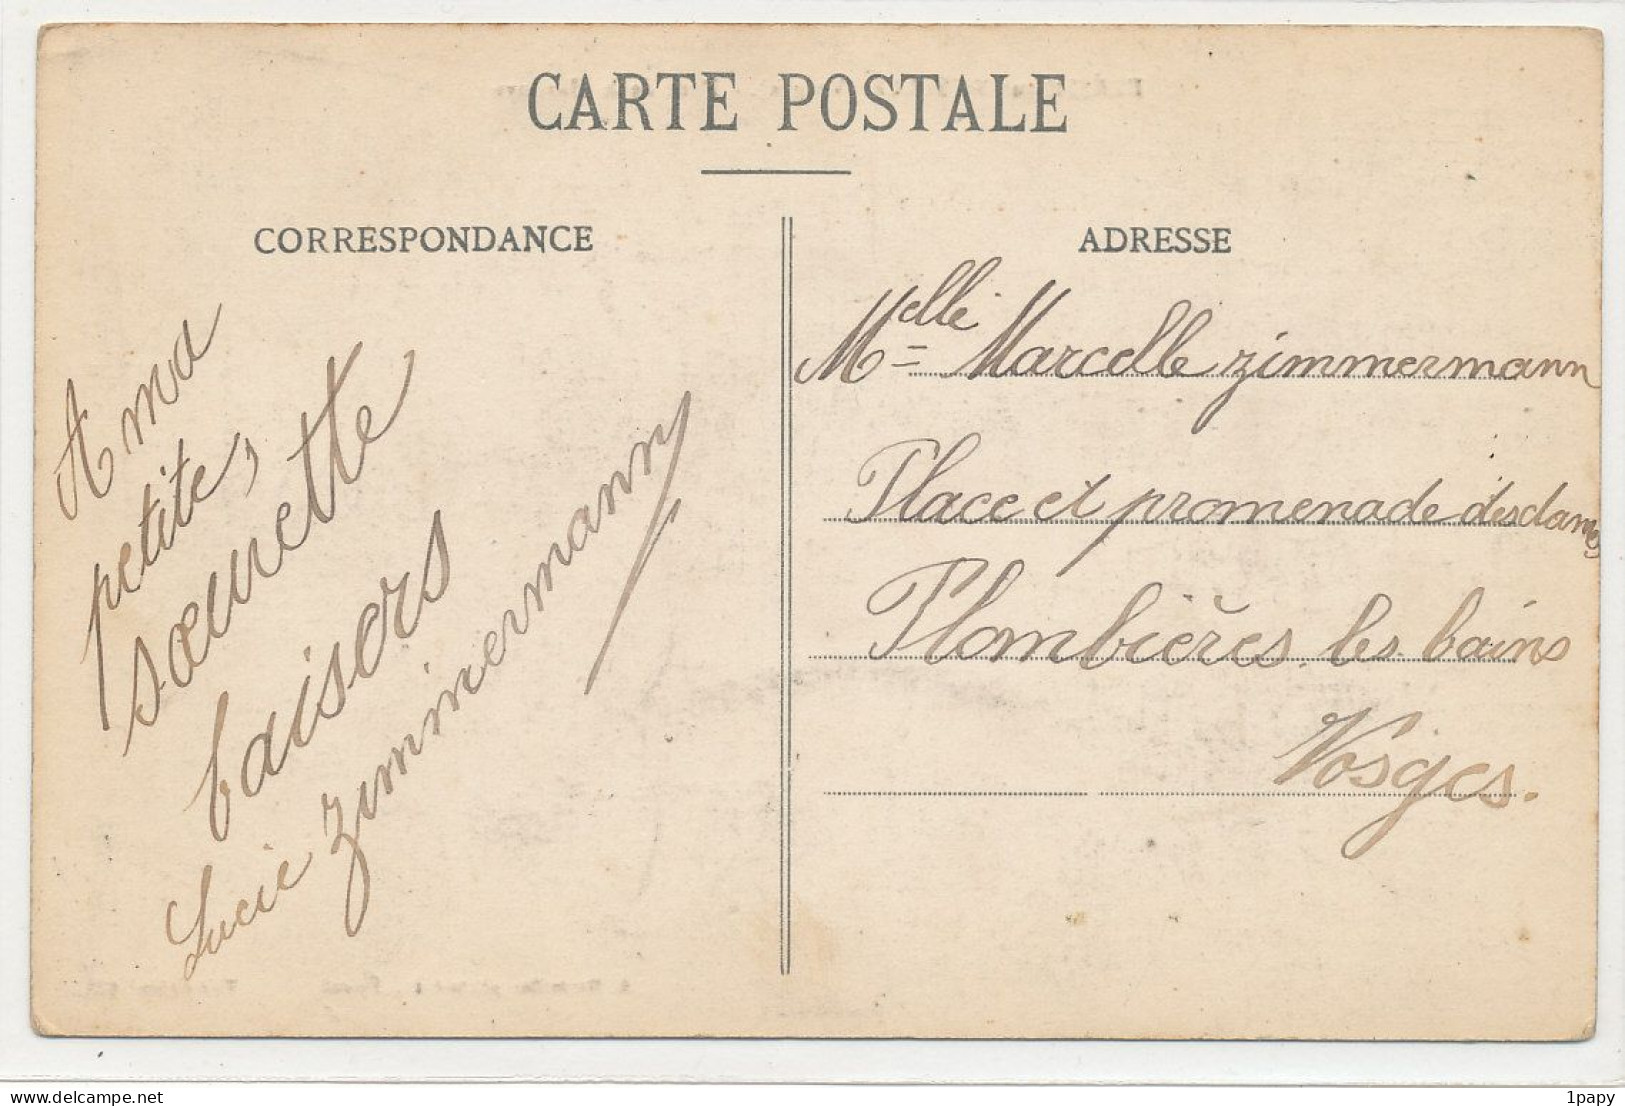 CARTE POSTALE
CORRESPONDANCE
A ma
petite,
sœurette
baisers
Lucie zimmermann
ADRESSE
Melle Marcelle zimmermann
Place et promenade des dames
Plombières les bains
Vosges.
delcampe.net
1papy